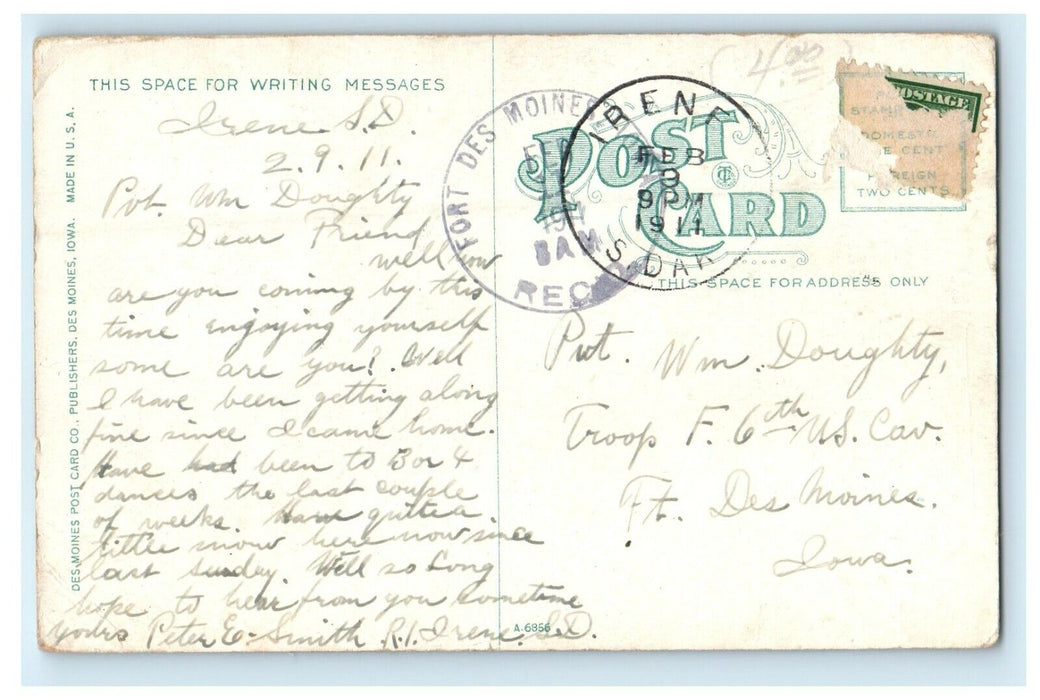 THIS SPACE FOR WRITING MESSAGES
Irene S.D.
2.9.11.
Pvt. Wm Doughty
Dear Friend
well how
are you coming by this
time engoying yourself
some are you? Well
I have been getting along
fine since I came home.
Have had been to 3 or 4
dances the last couple
of weeks. Have quite a
little snow here now since
last Sunday. Well so Long
hope to hear from you sometime
Yours Peter E. Smith R.1. Irene, S.D.
DES MOINES POST CARD CO., PUBLISHERS, DES MOINES, IOWA. MADE IN U. S. A.
(4.00)
FORT DES MOINES
191
8 AM
REC'D
IRENE
FEB
9
9 PM
1911
S. DAK
POST CARD
POSTAGE
DOMESTIC
ONE CENT
FOREIGN
TWO CENTS
THIS SPACE FOR ADDRESS ONLY
Pvt. Wm. Doughty,
Troop F. 6th U.S. Cav.
Ft. Des Moines.
Iowa.
A-6856